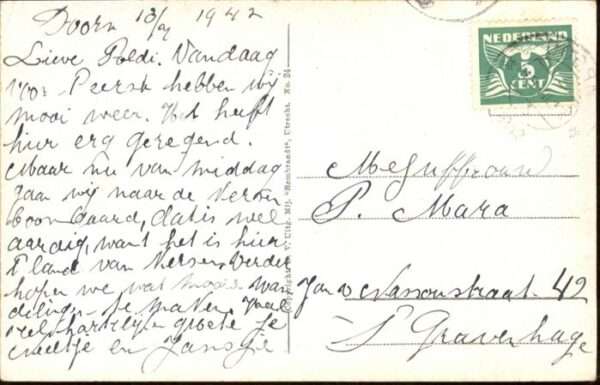 Doorn 13/7 1942
Lieve Poldi. Vandaag
voor 't eerst hebben wij
mooi weer. Het heeft
hier erg geregend.
Maar nu van middag
gaan wij naar de kersen
boomgaard, dat is wel
aardig, want het is hier
't land van kersen. Verder
hopen we wat mooie wan
delingen te maken. Veel
hartelijke groete
en Jansje
Copyright Uitg. Mij. "Rembrandt", Utrecht. No. 24
NEDERLAND
5
CENT
Mejuffrouw
P. Mara
Jan v Nassaustraat 42
's Gravenhage